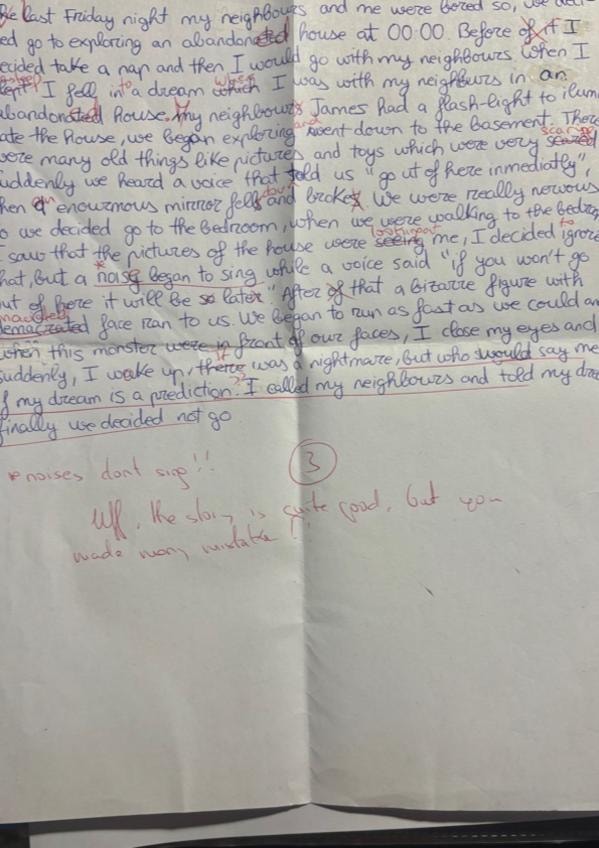 The last Friday night my neighbours and me were bored so, we deci
ed go to exploring an abandonated house at 00:00. Before of it I
ecided take a nap and then I would go with my neighbours. When I
asleep when
lept I fell into a dream which I was with my neighbours in an
abandonated house. My neighbours James had a flash-light to ilumi
and
ate the house, we began exploring went down to the basement. There
scary
were many old things like pictures and toys which were very scared
uddenly we heard a voice that told us "go out of here inmediatly",
hen an enourmnous mirror fell and broke. We were really nervous
o we decided go to the bedroom, when we were walking to the bedroo
looking at to
I saw that the pictures of the house were seeing me, I decided ignore
hat, but a *noise began to sing while a voice said "if you won't go
ut of here it will be so later" After of that a bizarre figure with
demacrated face ran to us. We began to run as fast as we could an
when this monster were in front of our faces, I close my eyes and
it
suddenly, I woke up, there was a nightmare, but who would say me
if my dream is a prediction? I called my neighbours and told my drea
finally we decided not go
3
*noises dont sing!!
Uff, the story is quite good, but you
made many mistake!!